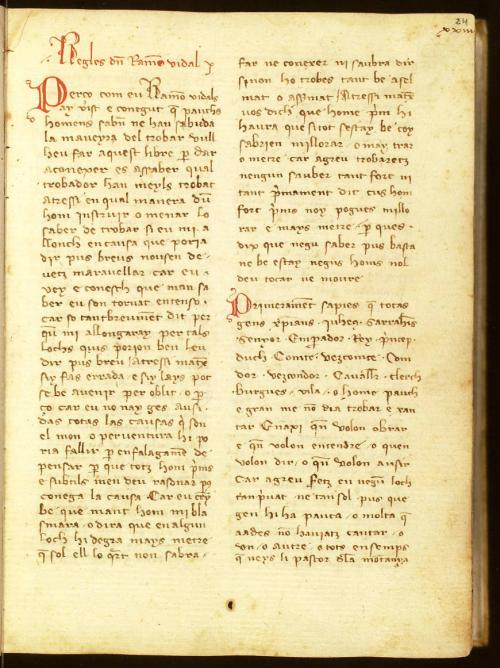 24
xxiiii
Regles d'en Ramo vidal
Perço com eu Ramo vidals
ay vist e conegut q pauchs
homens sabn ne han sabuda
la maneyra del trobar vull
heu far aquest libre p dar
a conexer e assaber qual
trobador han meyls trobat
Atressi en qual manera du
hom instruir o menar lo
saber de trobar si eu mi a
llonch en causa que poria
dir pus breus no us en de
vetz maravellar car eu
vey e conesch que man sa
ber eu son tornat entenso
car so tant breument dit per
qu mi allongaray per tals
lochs quis porion ben leu
dir pus breu Atressi
si y fas errada e si y lays pot
se be avenir per oblit o p
ço car eu no nay ges ausi
das totas las causas q son
el mon o per ventura hi po
ria fallir p enfalagame de
pensar p que totz hom prims
e subtils men deu rasonar pº
conega la causa Car eu
be que mant hom mi bla
smara o dira que en algun
loch hi degra mays metre
q sol ell lo qrt non sabra
far ne conexer ni saubra dir
si non ho trobes tant be asel
mat o assimat Atressi
vos dich que home prim hi
haura que si tot sestay be coy
sabrien millorar o may trar
o metre car agreu trobaretz
nengun sauber tant fort ni
tant primament dit cus hom
fort prims noy pogues millo
rar e mays metre p ques
dix que negu saber pus basta
ne be estay negus homs nol
deu tocar ne moure
Primerament sapies q totas
gens xpians juheus sarrahis
senyor Emperador Rey princep
duch Comte vezcomte Com
dor vezcondor Cavaller clerch
Burgues vila o home pauch
e gran me no dia trobar e xan
tar Enaxi qu volon obrar
e qu volon entendre o quen
volon dir o qu volon ausir
Car agreu serez en negu loch
tan privat ne tan sol pus que
gen hi ha pauca o molta q
aades no hauiatz cantar o
un o autre o tots ensemps
q neys li pastor dla montanya